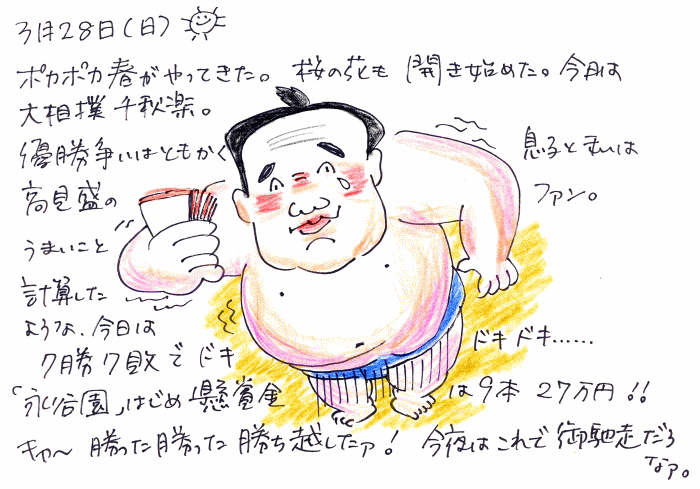 3月28日(日)
ポカポカ春がやってきた。 桜の花も 開き始めた。今日は
大相撲千秋楽。
優勝争いはともかく 息子と私は
高見盛の ファン。
うまいこと
計算した
ような、今日は
7勝7敗で ドキ ドキドキ……
「永谷園」はじめ懸賞金は9本 27万円!!
キャ〜 勝った勝った 勝ち越したァ! 今夜はこれで御馳走だろ
なァ。